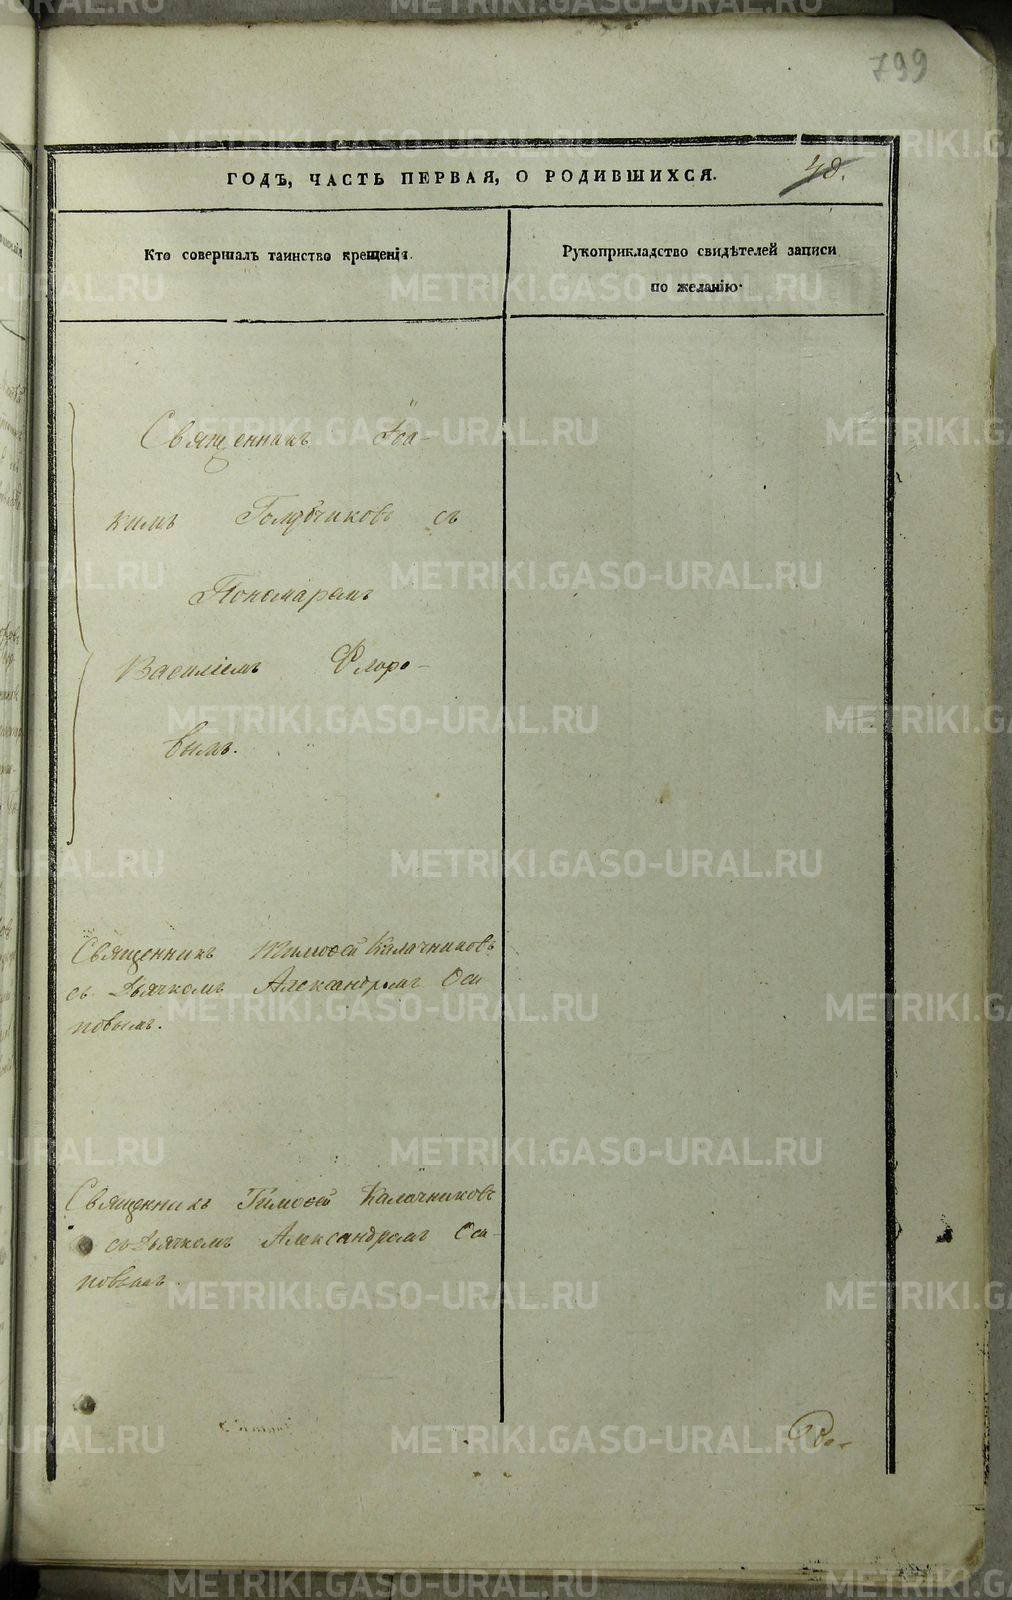 799
ГОДЪ, ЧАСТЬ ПЕРВАЯ, О РОДИВШИХСЯ.
48.
Кто совершалъ таинство крещенія.
Рукоприкладство свидѣтелей записи
по желанію.
Священникъ Іоа-
кимъ Голубчиковъ съ
Пономаремъ
Василіемъ Флоро-
вымъ.
Священникъ Тимоѳей Калачниковъ
съ Дьячкомъ Александромъ Оси
повымъ.
Священникъ Тимоѳей Калачниковъ
съ Дьячкомъ Александромъ Оси-
повымъ.
METRIKI.GASO-URAL.RU